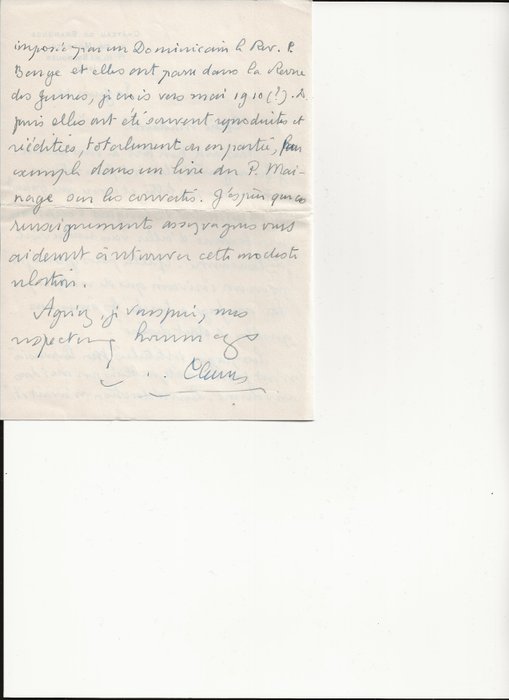 imposée par un Dominicain le Rev. P.
Barge et elles ont paru dans la Revue
des Jeunes, je crois vers mai 1910 (?). De
puis elles ont été souvent reproduites et
rééditées, totalement ou en partie, par
exemple dans un livre du P. Mai-
nage sur les convertis. J'espère que ces
renseignements assez vagues vous
aideront à retrouver cette modeste
relation.
Agréez, je vous prie, mes
respectueux hommages